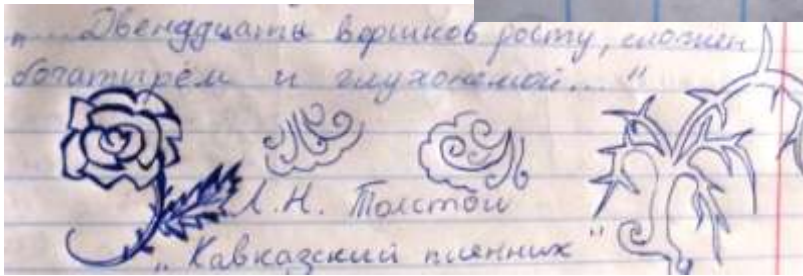 „... Двенддцать вершков росту, сложен
богатырём и глухонемой... "
Л.Н. Толстой
„Кавказский пленник"